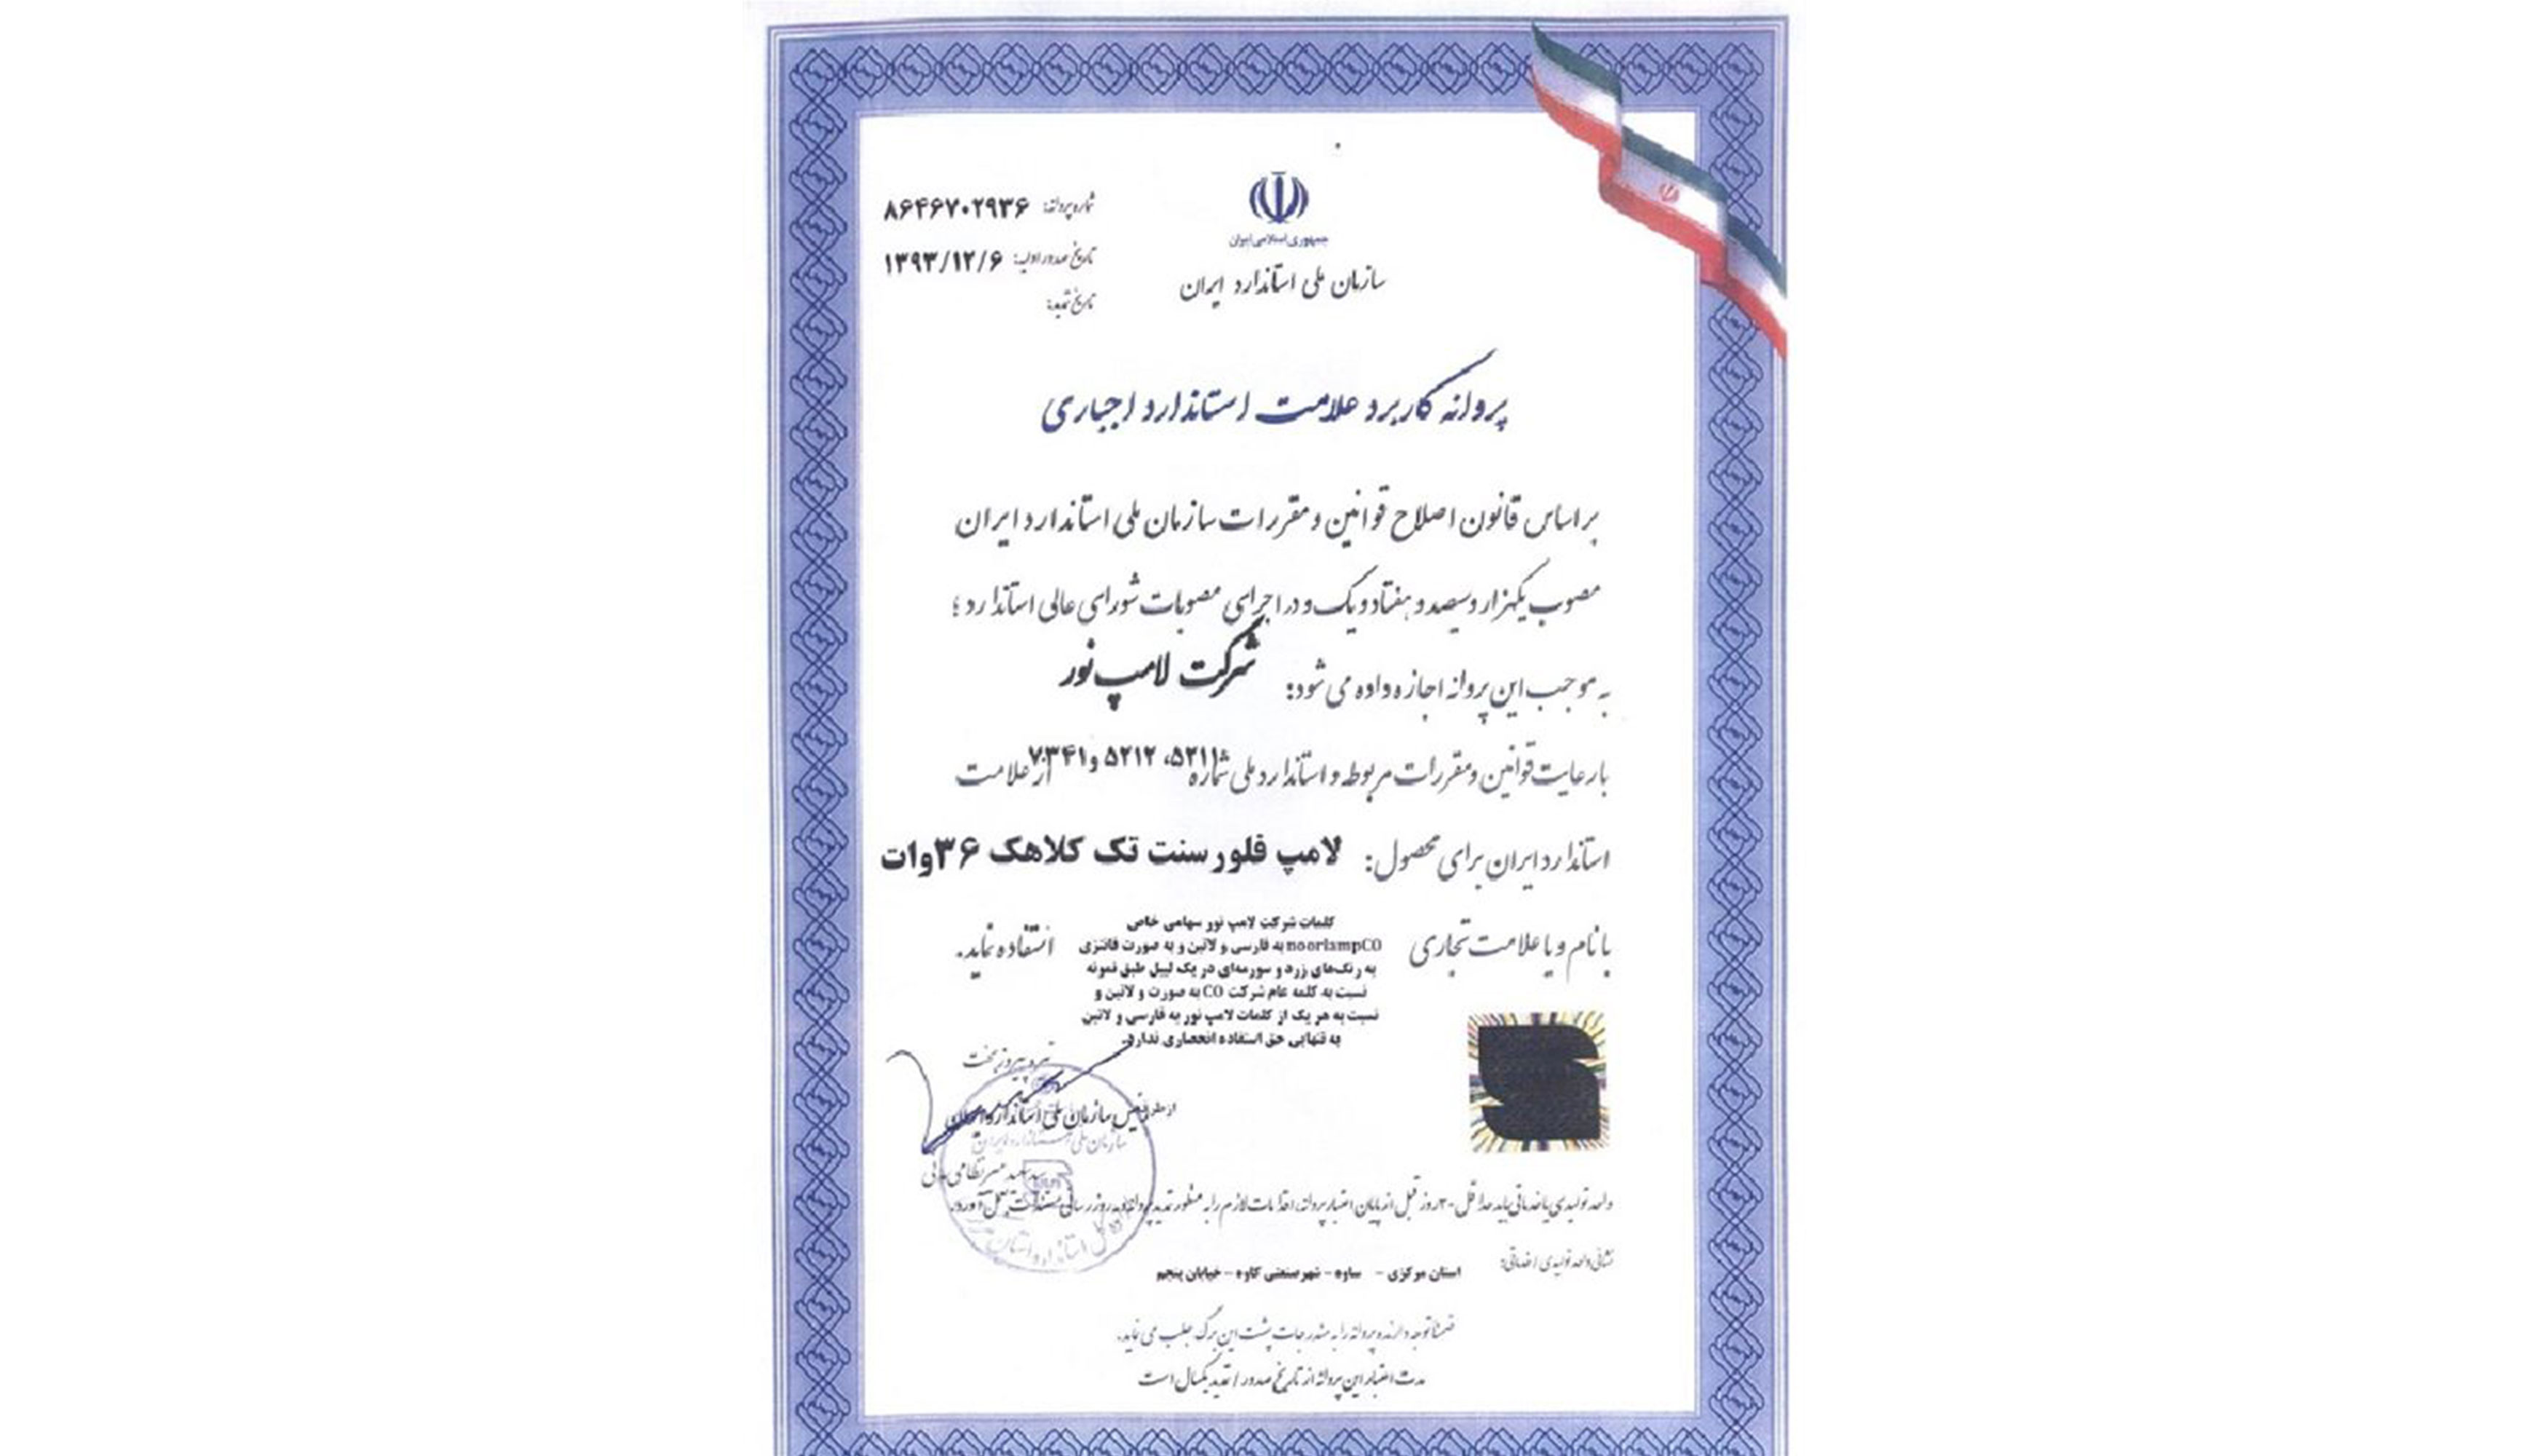 جمهوری اسلامی ایران
سازمان ملی استاندارد ایران
شماره پروانه: ۸۶۴۶۷۰۲۹۳۶
تاریخ صدور اولیه: ۱۳۹۳/۱۲/۶
تاریخ تمدید:
پروانه کاربرد علامت استاندارد اجباری
بر اساس قانون اصلاح قوانین و مقررات سازمان ملی استاندارد ایران
مصوب یکهزار و سیصد و هفتاد و یک و در اجرای مصوبات شورای عالی استاندارد ؛
به موجب این پروانه اجازه داده می شود: شرکت لامپ نور
با رعایت قوانین و مقررات مربوط و استاندارد ملی شماره ۵۲۱۱، ۵۲۱۲ و ۷۳۴۱ از علامت
استاندارد ایران برای محصول: لامپ فلورسنت تک کلاهک ۳۶وات
با نام و یا علامت تجاری
کلمات شرکت لامپ نور سهامی خاص
noorlampCO به فارسی و لاتین و به صورت فانتزی
به رنگ‌های زرد و سورمه‌ای در یک لیبل طبق نمونه
نسبت به کلمه عام شرکت CO به صورت و لاتین و
نسبت به هر یک از کلمات لامپ نور به فارسی و لاتین
به تنهایی حق استفاده انحصاری ندارد.
استفاده نماید.
نیره پیروزبخت
از طرف رئیس سازمان ملی استاندارد ایران
سازمان ملی استاندارد ایران
واحد تولیدی یا خدماتی باید حداقل ۳۰ روز قبل از پایان اعتبار پروانه، اقدامات لازم را به منظور تمدید پروانه و به روز رسانی مستندات به عمل آورد.
نشانی واحد تولیدی / خدماتی: استان مرکزی - ساوه - شهر صنعتی کاوه - خیابان پنجم
ضمناً توجه دارنده پروانه را به مندرجات پشت این برگ جلب می نماید.
مدت اعتبار این پروانه از تاریخ صدور / تمدید یکسال است